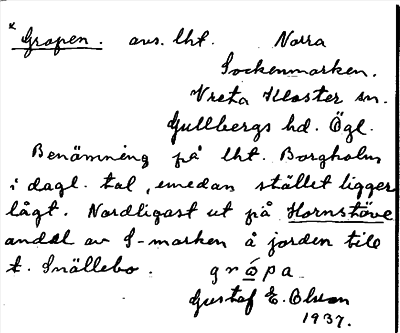 * Gropen. avs. lht. Norra
Sockenmarken.
Vreta Kloster sn.
Gullbergs hd. Ögl.
Benämning på lht. Borgholm
i dagl. tal, emedan stället ligger
lågt. Nordligast ut på Hornstöve
andel av S-marken å jorden till
t. Snällebo. grópa
Gustaf E. Olsson
1937.